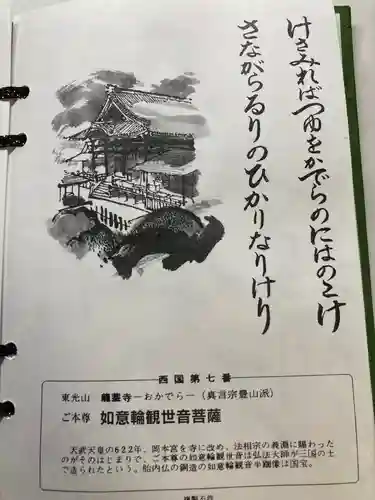 けさみればつゆをかでらのにはのこけ
さながらるりのひかりなりけり
西国第七番
東光山 龍蓋寺－おかでら－（真言宗豊山派）
ご本尊 如意輪観世音菩薩
天武天皇の622年、岡本宮を寺に改め、法相宗の義淵に賜わった
のがそのはじまりで、ご本尊の如意輪観音は弘法大師が三国の土
で造られたという。胎内仏の銅造の如意輪観音半跏像は国宝。